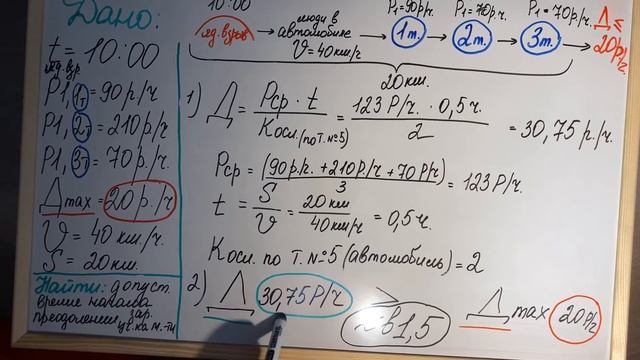 Дано:
t = 10:00
яд.взр
P1,1т = 90р/ч
P1,2т = 210р/ч
P1,3т = 70р/ч.
Дmax = 20р./ч
V = 40 км/ч.
S = 20км.
Найти: допуст.
время начала
преодолении зар.
уч.ка м.-ти
10:00
яд.взрыв
люди в
автомобиле
V = 40км/ч
P1=90р/ч.
P1=70р/ч.
P1=70р/ч.
1т.
2т.
3т.
Д≤
20р/ч.
20км.
1) Д = Рср · t / Косл.(по Т.№5) = 123 Р/ч. · 0,5ч. / 2 = 30,75 р./ч.
Рср = (90р.ч. + 210Р/ч + 70 Р/ч) / 3 = 123 Р/ч.
t = S / V = 20км / 40км/ч = 0,5ч.
Косл. по Т.№5 (автомобиль) = 2
2) Д 30,75Р/ч > Дmax 20Р/ч
в 1,5